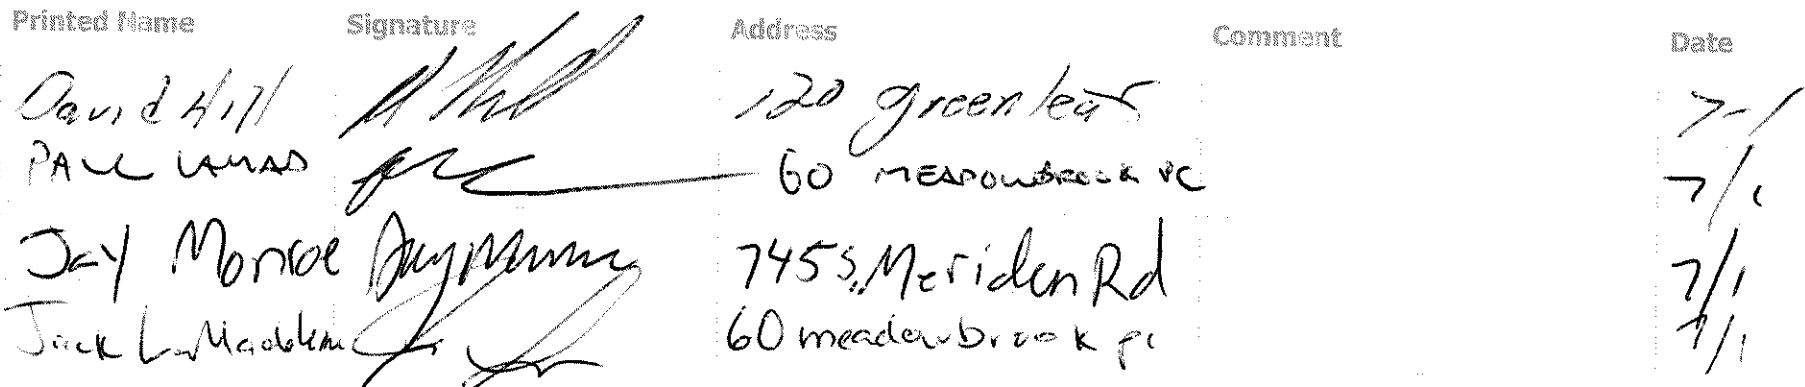 Printed Name Signature Address Comment Date
David Hill 120 greenleaf 7-1
PAUL 60 MEADOWBROOK PL 7/1
Jay Monroe Jay Monroe 745 S. Meriden Rd 7/1
Jack 60 meadowbrook pl 7/1